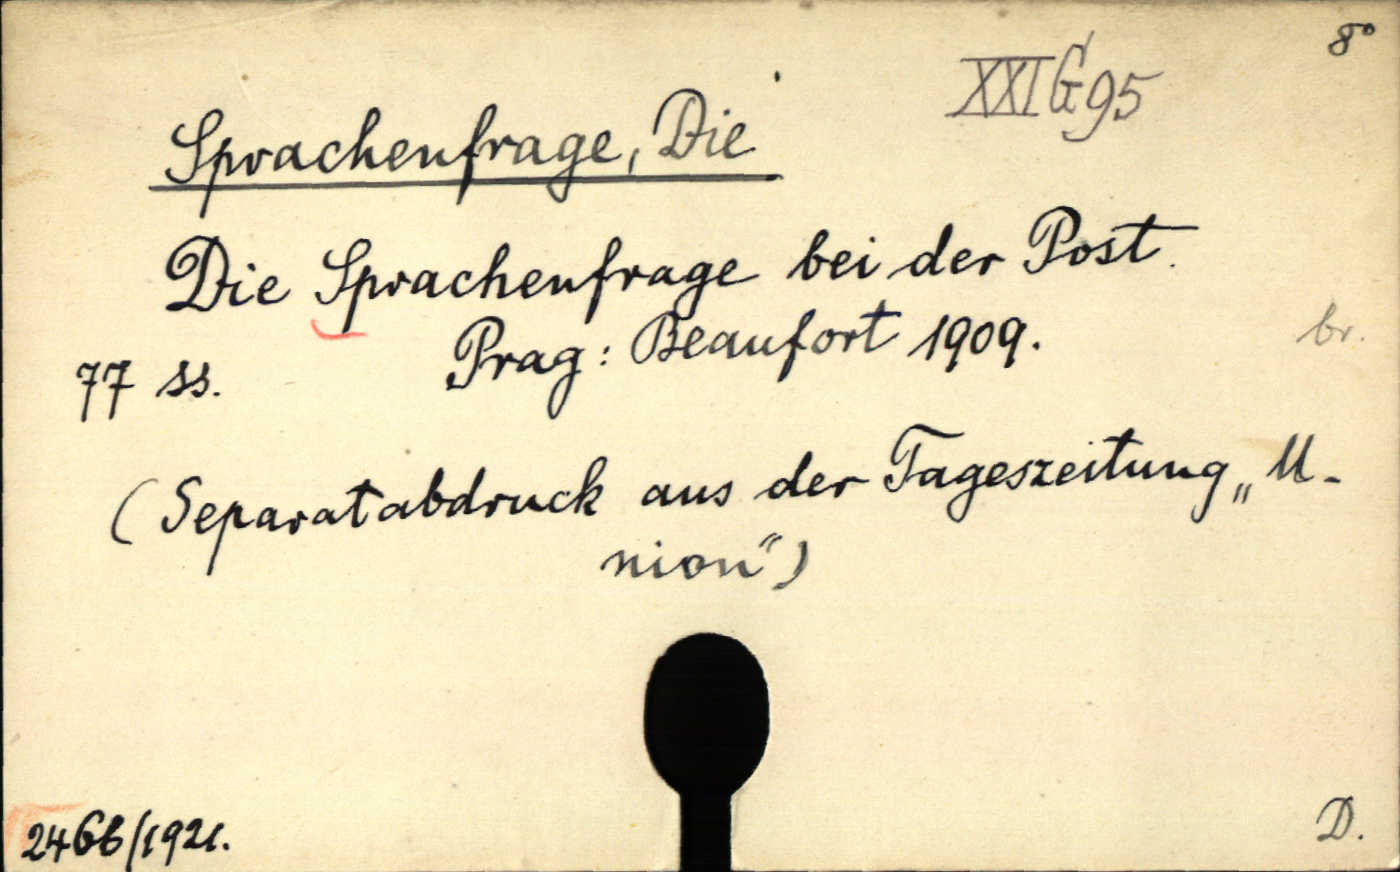 8°
XXI G 95
Sprachenfrage, Die
Die Sprachenfrage bei der Post.
Prag: Beaufort 1909.
br.
77 ss.
(Separatabdruck aus der Tageszeitung „U-
nion“)
2466/1921.
D.